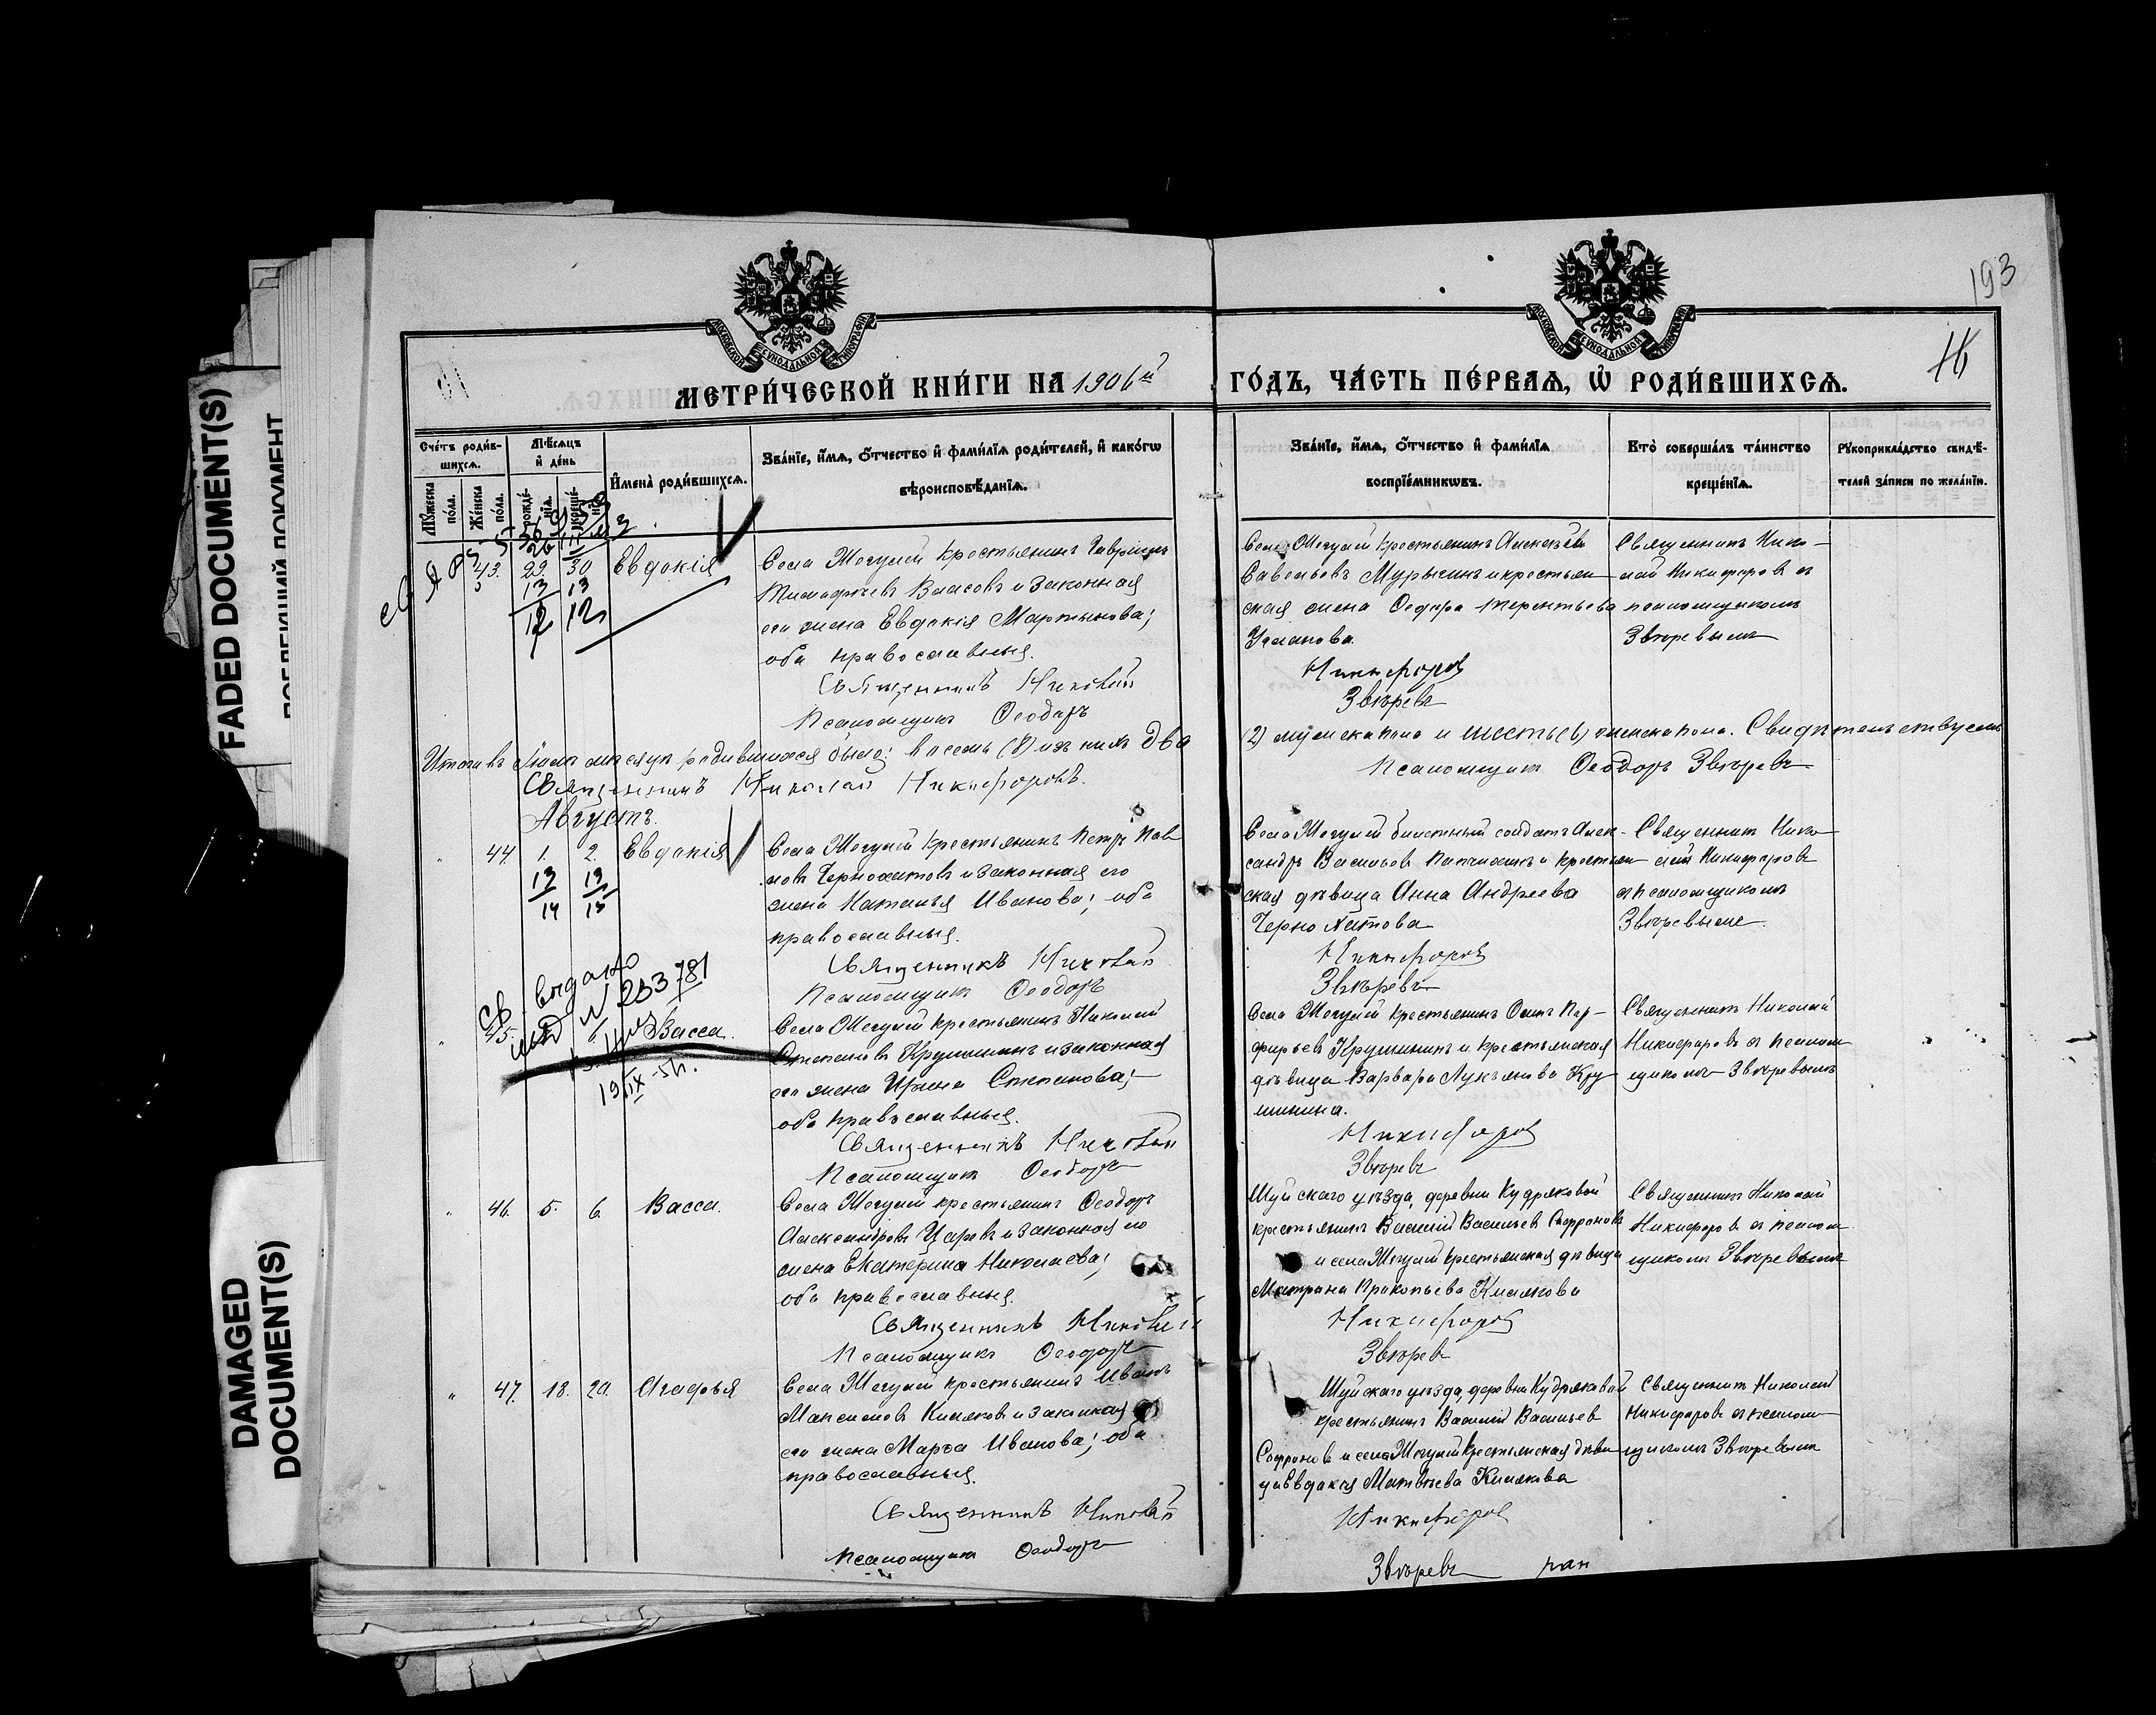 FADED DOCUMENT(S)
DAMAGED
DOCUMENT(S)
193
16
МОСКОВСКОЙ СѴНОДАЛЬНОЙ ТИПОГРАФІИ
МОСКОВСКОЙ СѴНОДАЛЬНОЙ ТИПОГРАФІИ
МЕТРИ́ЧЕСКОЙ КНИ́ГИ НА 1906й ГО́ДЪ, ЧА́СТЬ ПЕ́РВАѦ, Ѡ РОДИ́ВШИХСѦ.
Сче́тъ роди́в-
шихсѧ.
Мѣ́сяцъ
и҆ де́нь
И҆мена̀ роди́вшихсѧ.
Зва́нїе, и҆́мѧ, ѻ҆́тчество и҆ фами́лїѧ роди́телей, и҆ како́гѡ
вѣроисповѣ́данїѧ.
Зва́нїе, и҆́мѧ, ѻ҆́тчество и҆ фами́лїѧ
воспрїе́мникѡвъ.
Кто̀ соверша́лъ та́инство
креще́нїѧ.
Рꙋкоприкла́дство свидѣ́-
телей за́писи по жела́нїю.
Мꙋ́жеска
по́ла.
Же́нска
по́ла.
рожде́-
нїѧ.
креще́-
нїѧ.
43. 29. 30 Евдокія
13 13
12 12
Села Жегулей крестьянинъ
Власовъ и законная
его жена Евдокія Мартынова;
оба православныя.
Священникъ Николай
Псаломщикъ Ѳеодоръ
Села Жегулей крестьянинъ Алексѣй
Савельевъ Мурысинъ и крестьян-
ская жена Терентьева
Усманова.
Никифоровъ
Звѣревъ
Священникъ Нико-
лай Никифоровъ съ
псаломщикомъ
Звѣревымъ
Итого въ мѣсяцѣ родившихся было: восемь (8) изъ нихъ два (2) мужеска пола и шесть (6) женска пола. Свидѣтельствуемъ
Священникъ Николай Никифоровъ. Псаломщикъ Ѳеодоръ Звѣревъ
Августъ.
44. 1. 2. Евдокія
13 13
14 15
Села Жегулей крестьянинъ Петръ Пав-
ловъ Чернохатовъ и законная его
жена Наталья Иванова; оба
православныя.
Священникъ Николай
Псаломщикъ Ѳеодоръ
Села Жегулей билетный солдатъ Алек-
сандръ Васильевъ и крестьян-
ская дѣвица Анна Андреева
Чернохатова
Никифоровъ
Звѣревъ
Священникъ Нико-
лай Никифоровъ
съ псаломщикомъ
Звѣревымъ.
св. выдано
№ 233781
45. Васса.
19 IX-54.
Села Жегулей крестьянинъ Николай
Степановъ Крушининъ и законная
его жена Ирина Степанова;
оба православныя.
Священникъ Николай
Псаломщикъ Ѳеодоръ
Села Жегулей крестьянинъ Осипъ Пор-
фирьевъ Крушининъ и крестьянская
дѣвица Варвара Лукьянова Кру-
шинина.
Никифоровъ
Звѣревъ
Священникъ Николай
Никифоровъ съ псалом-
щикомъ Звѣревымъ
46. 5. 6. Васса.
Села Жегулей крестьянинъ Ѳеодоръ
Александровъ Царевъ и законная его
жена Екатерина Николаева;
оба православныя.
Священникъ Николай
Псаломщикъ Ѳеодоръ
Шуйскаго уѣзда, деревни Кудряковой
крестьянинъ Василій Васильевъ Софроновъ
и села Жегулей крестьянская дѣвица
Матрона Прокопьева Кислякова
Никифоровъ
Звѣревъ
Священникъ Николай
Никифоровъ съ псалом-
щикомъ Звѣревымъ
47. 18. 20. Агафья
Села Жегулей крестьянинъ Иванъ
Максимовъ Кисляковъ и законная
его жена Марѳа Иванова; оба
православныя.
Священникъ Николай
Псаломщикъ Ѳеодоръ
Шуйскаго уѣзда, деревни Кудряковой
крестьянинъ Василій Васильевъ
Софроновъ и села Жегулей крестьянская дѣви-
ца Евдокія Матвѣева Кислякова
Никифоровъ
Звѣревъ
Священникъ Николай
Никифоровъ съ псалом-
щикомъ Звѣревымъ